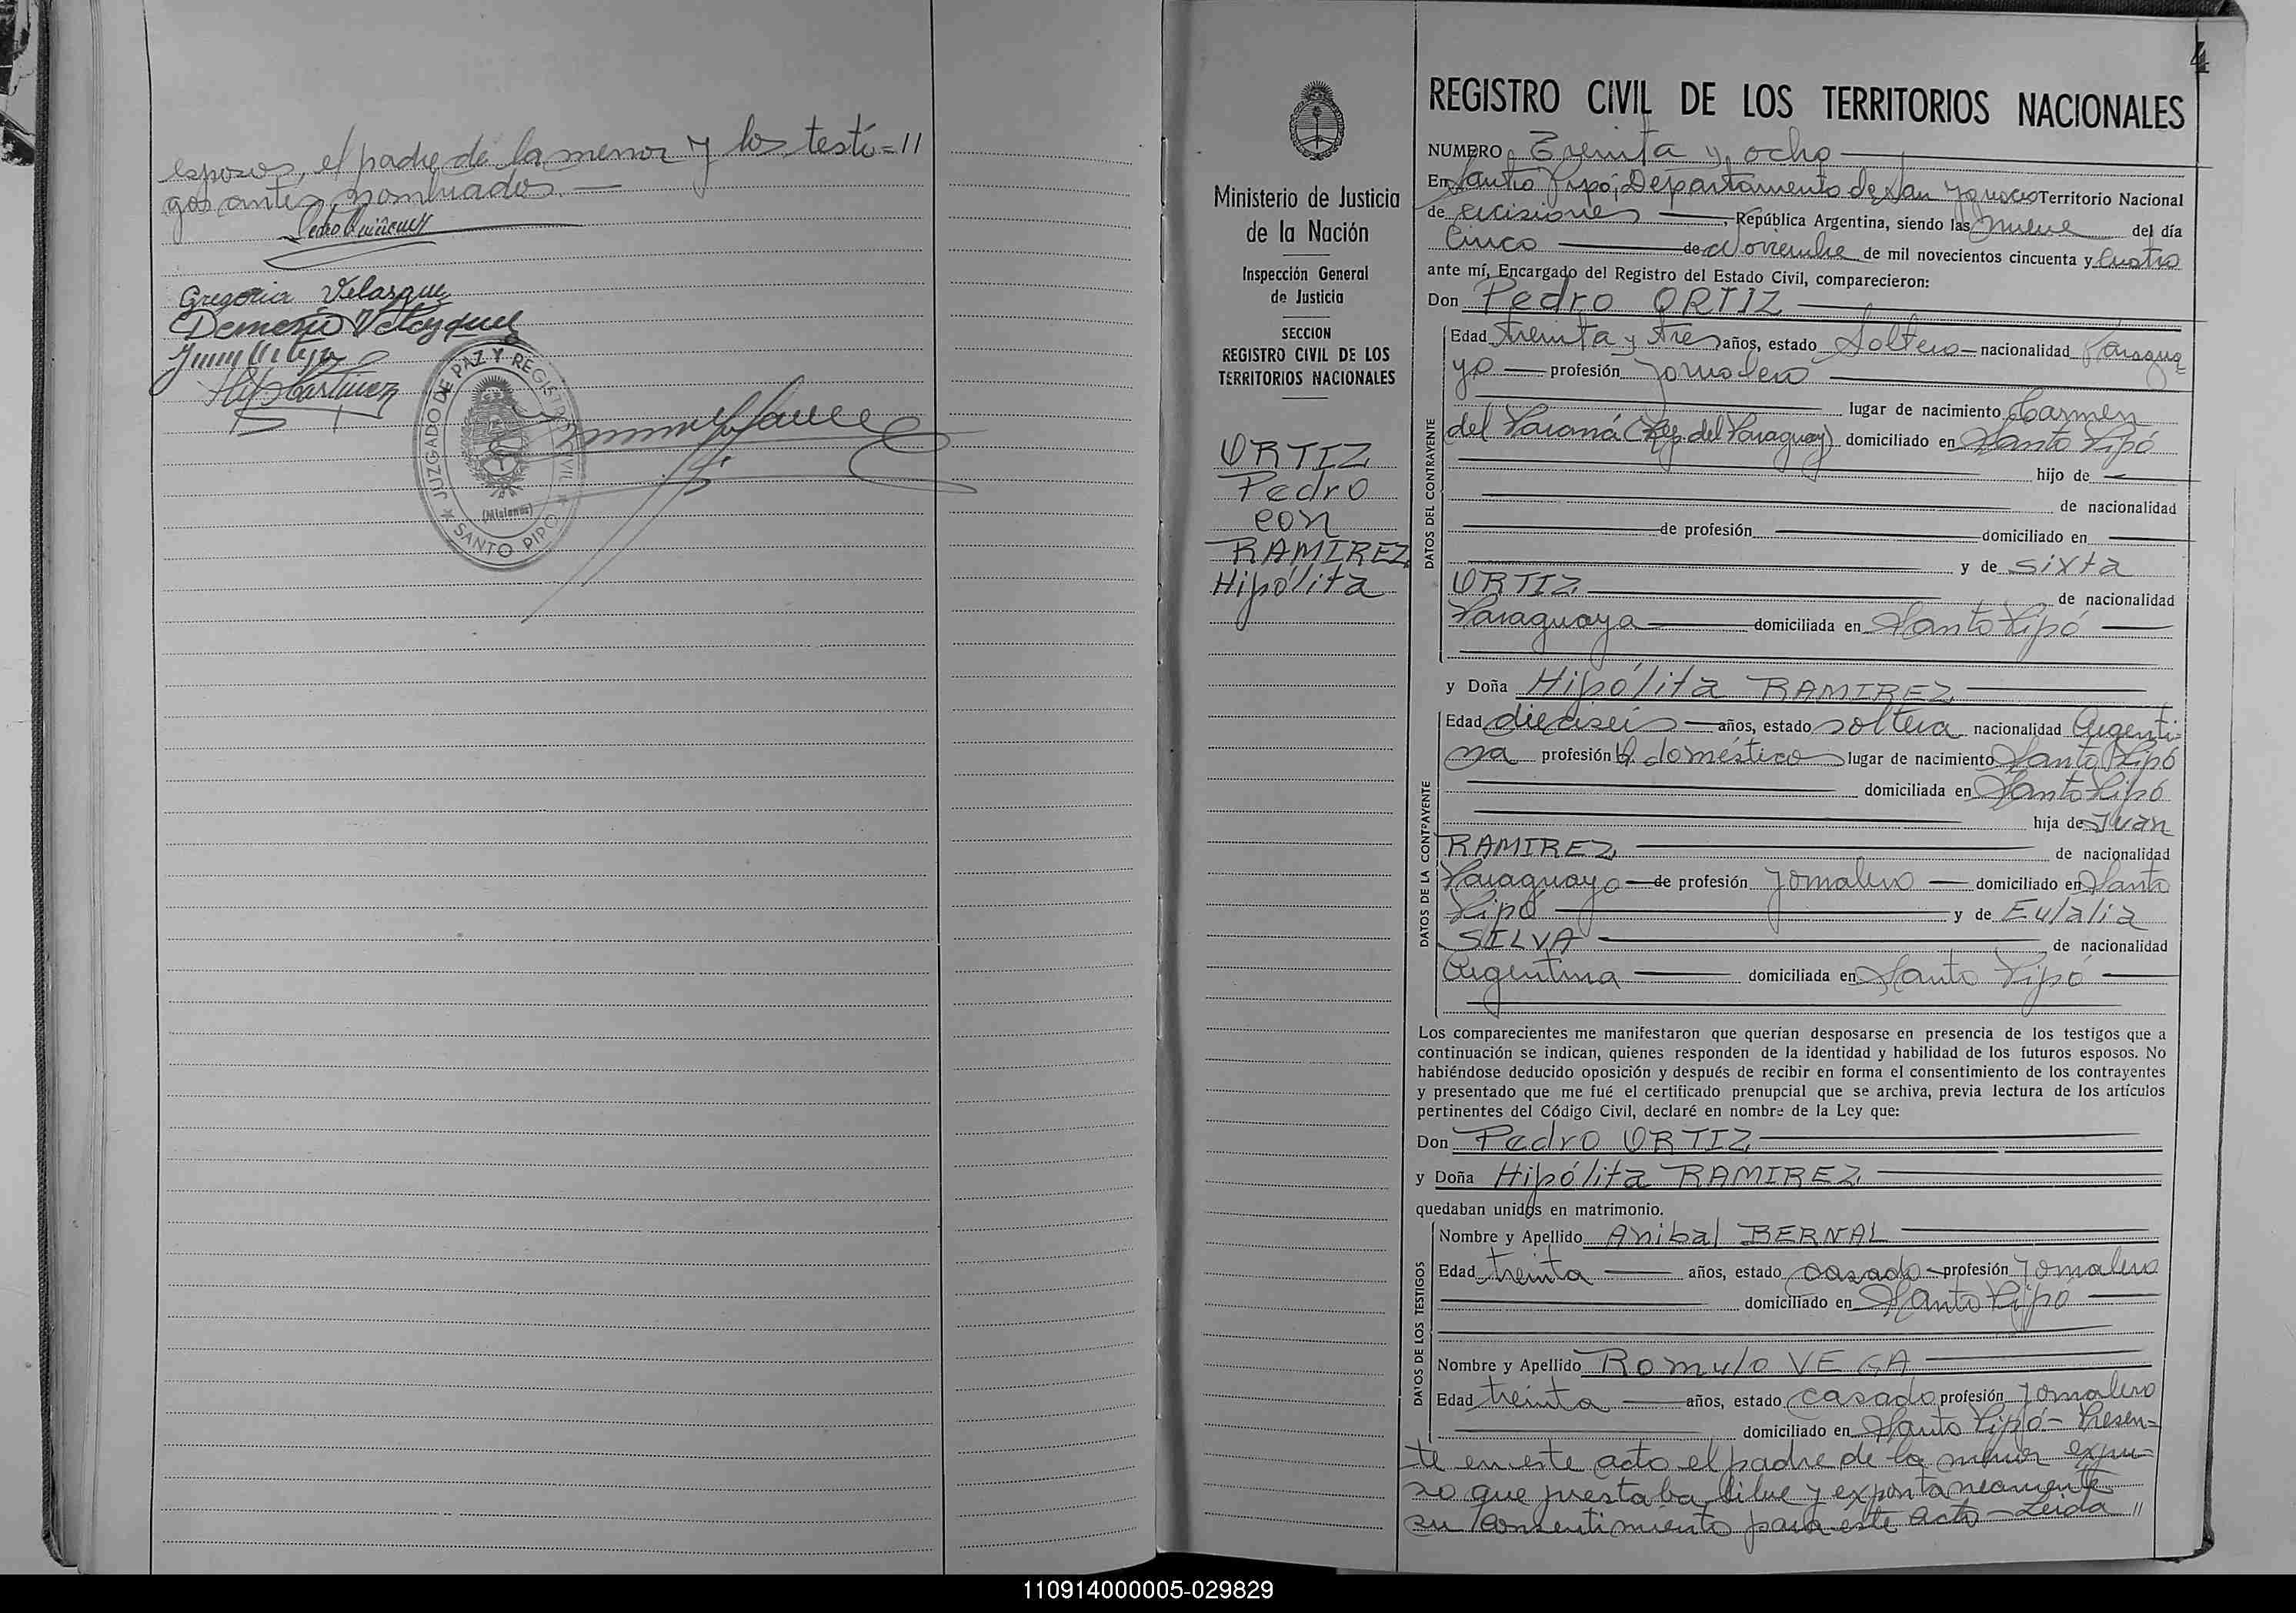 esposos, el padre de la menor y los testi=//
gos antes nombrados.—
Gregoria Velasquez
JUZGADO DE PAZ Y REGISTRO CIVIL
(Misiones)
★ SANTO PIPO ★
4
Ministerio de Justicia
de la Nación
Inspección General
de Justicia
SECCION
REGISTRO CIVIL DE LOS
TERRITORIOS NACIONALES
ORTIZ
Pedro
con
RAMIREZ
Hipólita
REGISTRO CIVIL DE LOS TERRITORIOS NACIONALES
NUMERO Treinta y ocho
En Santo Pipó, Departamento de San Ignacio Territorio Nacional
de Misiones, República Argentina, siendo las nueve del día
Cinco de Noviembre de mil novecientos cincuenta y Cuatro
ante mí, Encargado del Registro del Estado Civil, comparecieron:
Don Pedro ORTIZ
DATOS DEL CONTRAYENTE
Edad treinta y tres años, estado Soltero nacionalidad Paragua
yo profesión Jornalero
lugar de nacimiento Carmen
del Paraná (Rep. del Paraguay) domiciliado en Santo Pipó
hijo de
de nacionalidad
de profesión domiciliado en
y de Sixta
ORTIZ de nacionalidad
Paraguaya domiciliada en Santo Pipó
y Doña Hipólita RAMIREZ
DATOS DE LA CONTRAYENTE
Edad dieciseis años, estado soltera nacionalidad Argenti-
na profesión Q. doméstico lugar de nacimiento Santo Pipó
domiciliada en Santo Pipó
hija de Juan
RAMIREZ de nacionalidad
Paraguayo de profesión Jornalero domiciliado en Santo
Pipó y de Eulalia
SILVA de nacionalidad
Argentina domiciliada en Santo Pipó
Los comparecientes me manifestaron que querían desposarse en presencia de los testigos que a
continuación se indican, quienes responden de la identidad y habilidad de los futuros esposos. No
habiéndose deducido oposición y después de recibir en forma el consentimiento de los contrayentes
y presentado que me fué el certificado prenupcial que se archiva, previa lectura de los artículos
pertinentes del Código Civil, declaré en nombre de la Ley que:
Don Pedro ORTIZ
y Doña Hipólita RAMIREZ
quedaban unidos en matrimonio.
DATOS DE LOS TESTIGOS
Nombre y Apellido Anibal BERNAL
Edad treinta años, estado casado profesión Jornalero
domiciliado en Santo Pipó
Nombre y Apellido Romulo VEGA
Edad treinta años, estado casado profesión Jornalero
domiciliado en Santo Pipó- Presen=
te en este acto el padre de la menor expu=
so que prestaba libre y expontaneamente
su consentimiento para este acto - Leida //
110914000005-029829